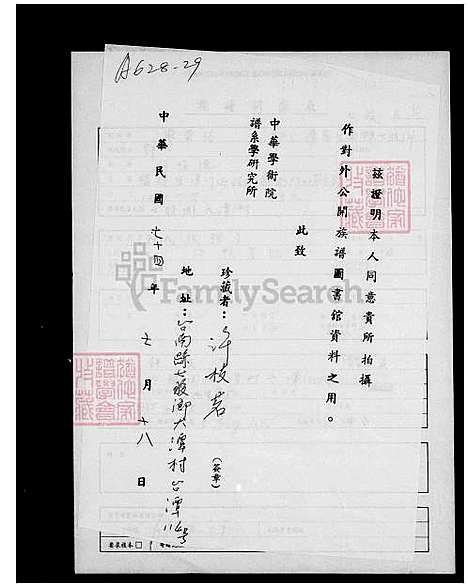 A628-29
茲證明本人同意貴所拍攝
作對外公開族譜圖書館資料之用。
此致
中華學術院
譜系學研究所
珍藏者：許枝茗
（簽章）
地址：台南縣七股鄉大潭村台潭114號
中華民國七十四年七月十八日
FamilySearch